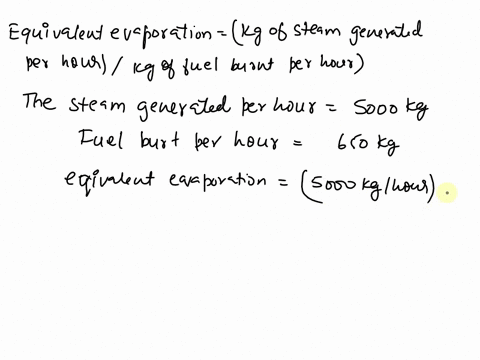 Equivalent evaporation = (kg of steam generated
per hour) / kg of fuel burnt per hour)
The steam generated per hour = 5000 kg
Fuel burt per hour = 650 kg
eqivalent evaporation = (5000 kg/hour)